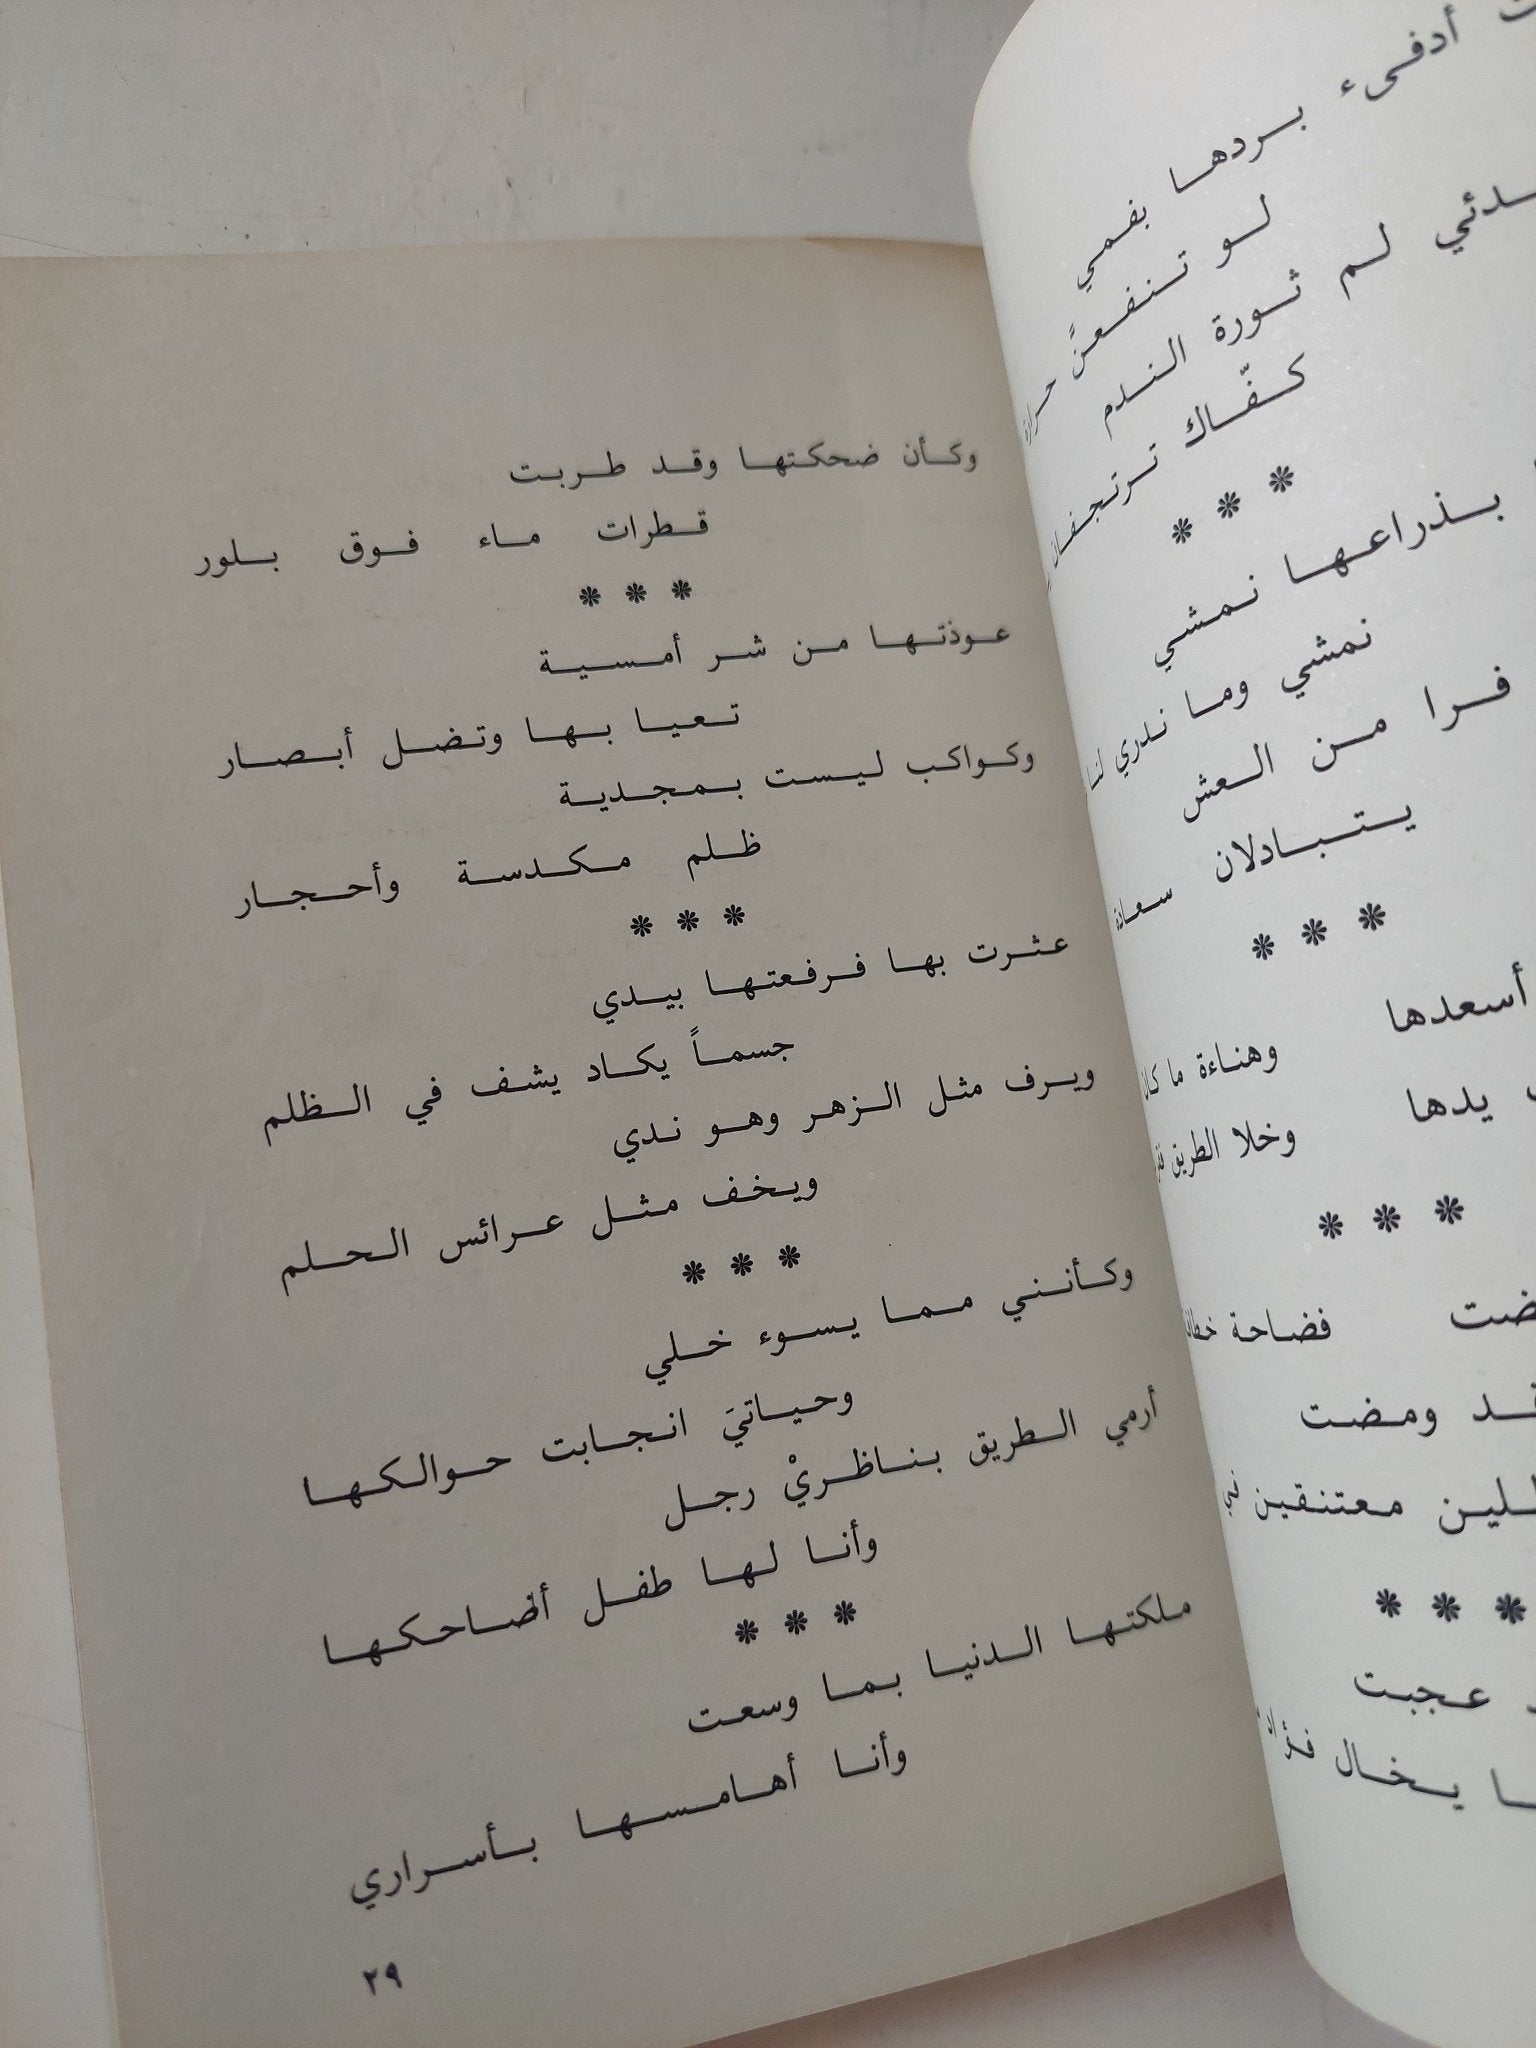 أدفىء بردها بفمي
لو تنفعنً حرارة
لم ثورة الندم
كفّاك ترتجفان
* * *
بذراعها نمشي
نمشي وما ندري لنا
فرا من العش
يتبادلان سعادة
* * *
أسعدها
وهناءة ما كان
يدها
وخلا الطريق
* * *
فضاحة
ومضت
معتنقين في
* * *
عجبت
يخال فؤاد
وكأن ضحكتها وقد طربت
قطرات ماء فوق بلور
* * *
عوذتها من شر أمسية
تعيا بها وتضل أبصار
وكواكب ليست بمجدية
ظلم مكدسة وأحجار
* * *
عثرت بها فرفعتها بيدي
جسماً يكاد يشف في الظلم
ويرف مثل الزهر وهو ندي
ويخف مثل عرائس الحلم
* * *
وكأنني مما يسوء خلي
وحياتيَ انجابت حوالكها
أرمي الطريق بناظريْ رجل
وأنا لها طفل أضاحكها
* * *
ملكتها الدنيا بما وسعت
وأنا أهامسها بأسراري
٢٩